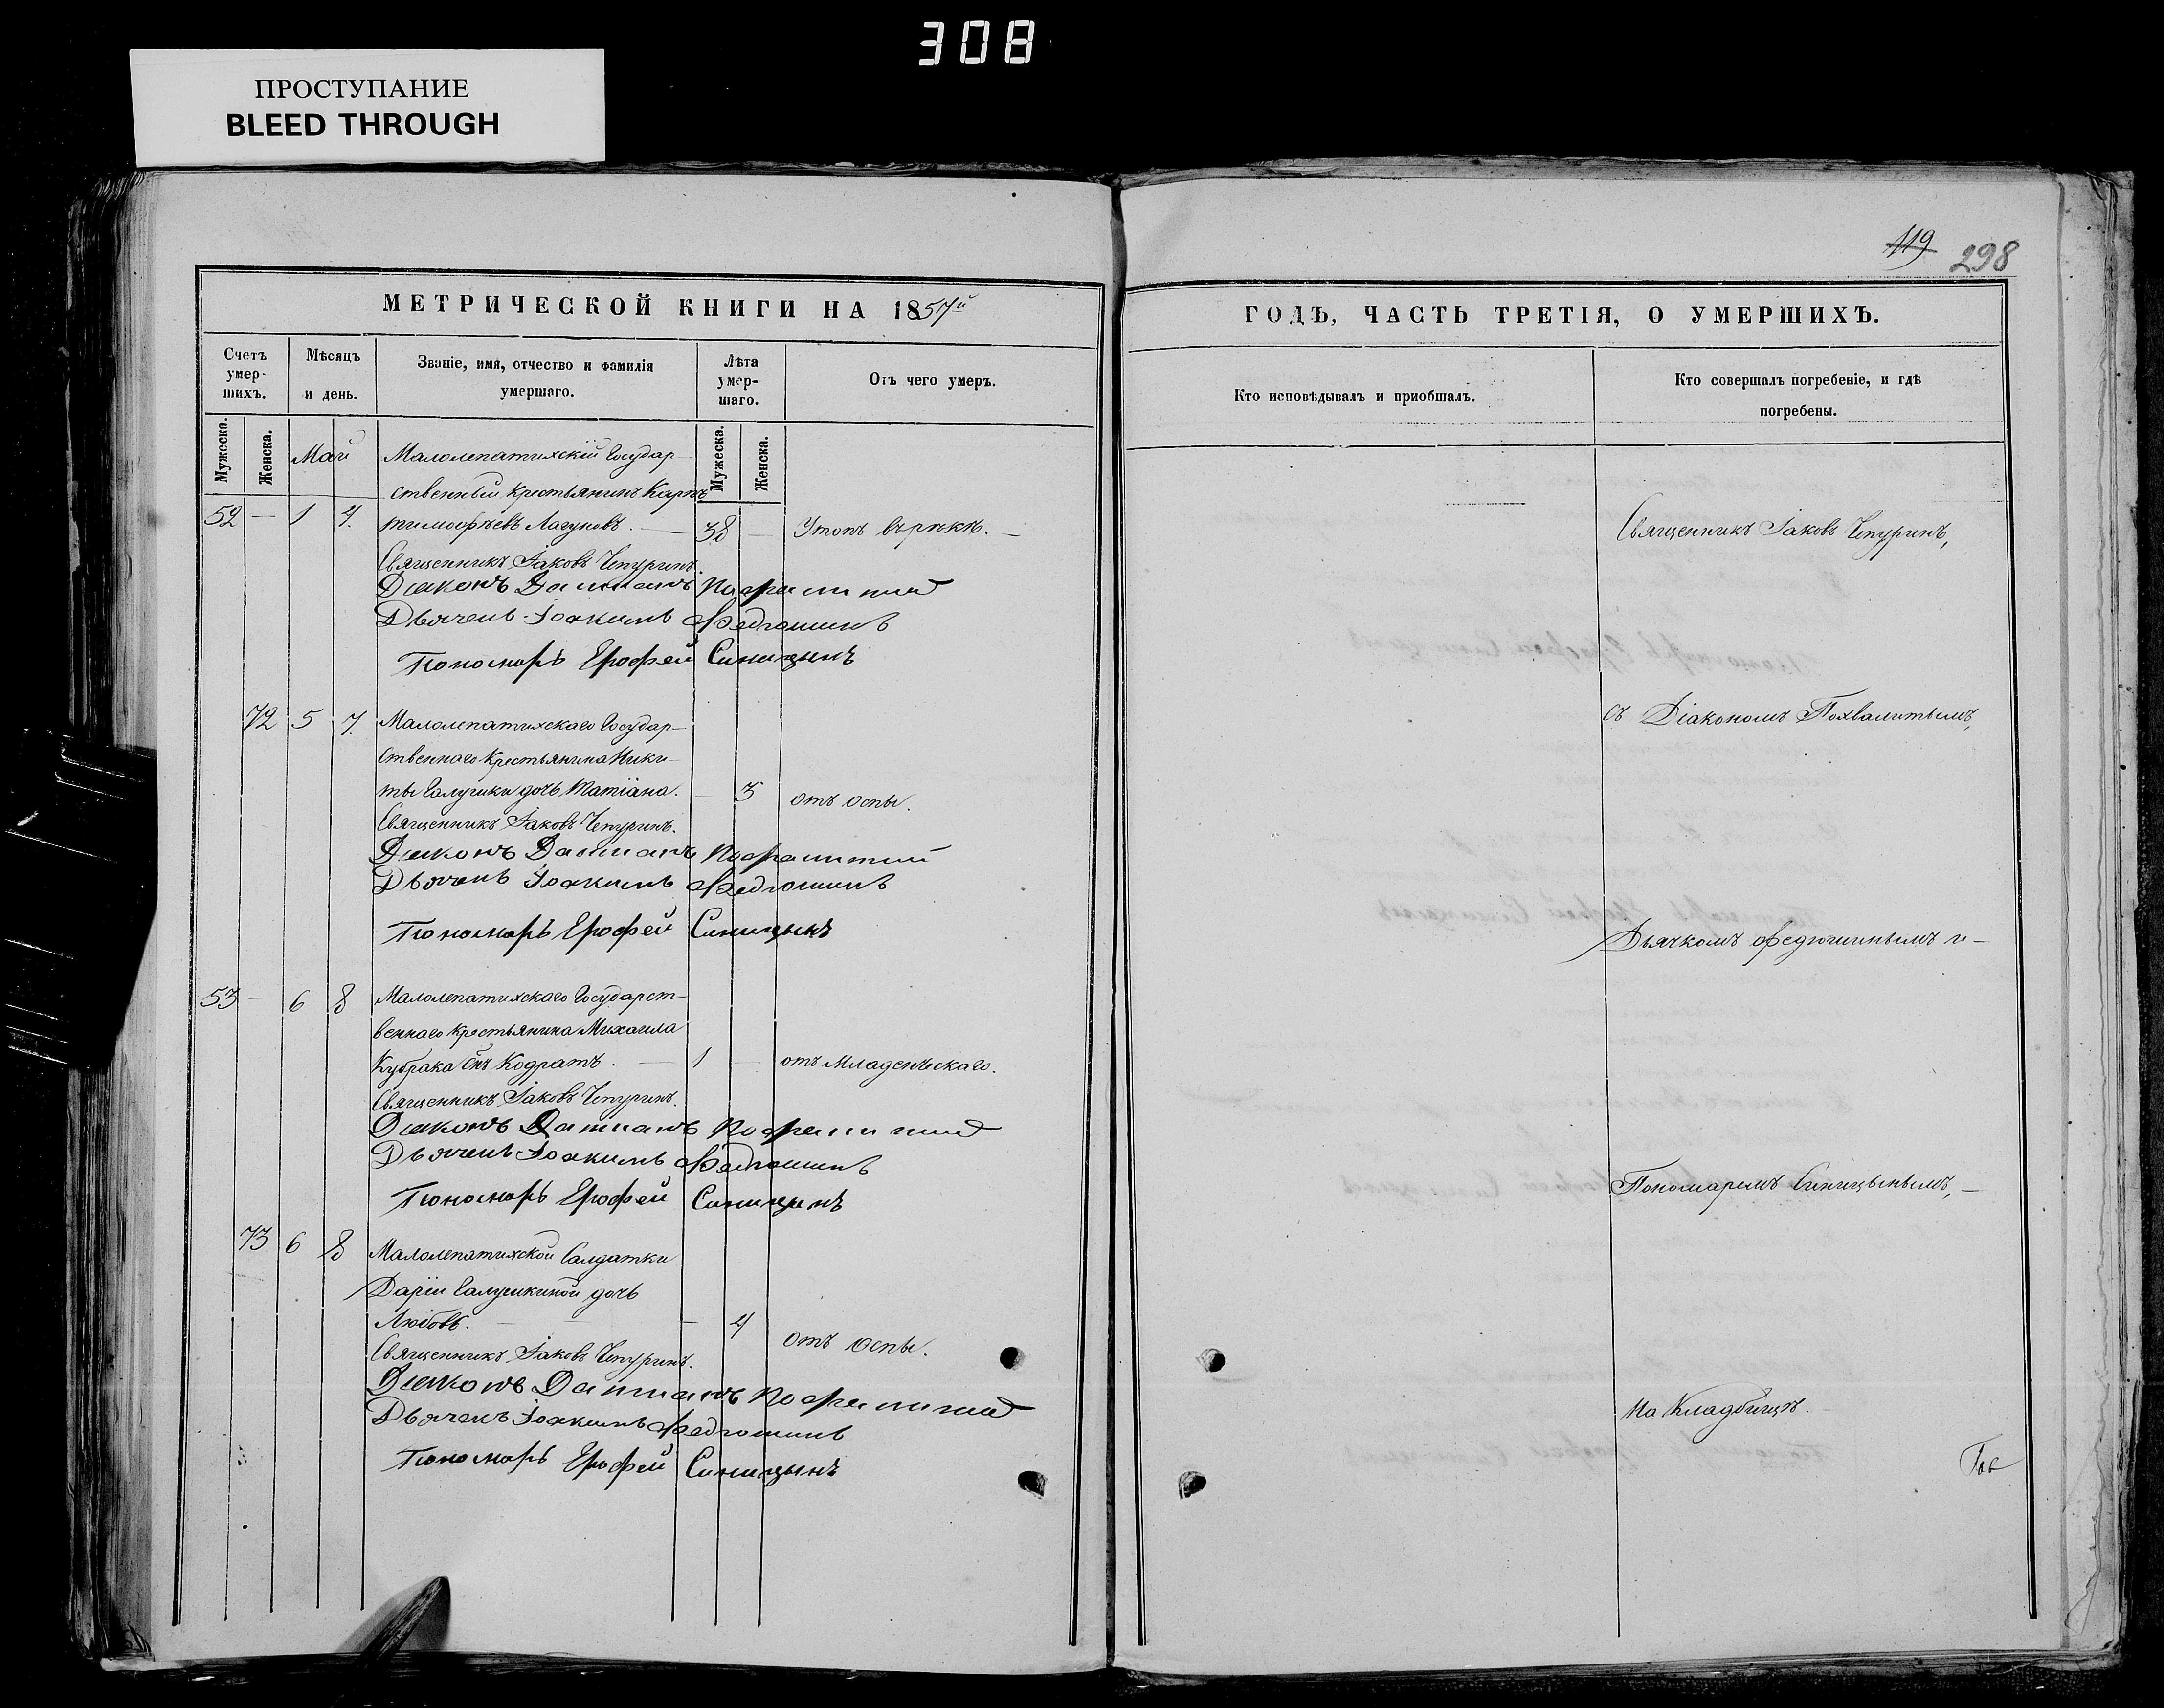 308
ПРОСТУПАНИЕ
BLEED THROUGH
119 298
МЕТРИЧЕСКОЙ КНИГИ НА 1857й
ГОДЪ, ЧАСТЬ ТРЕТІЯ, О УМЕРШИХЪ.
Счетъ умер-шихъ.
Мѣсяцъ и день.
Званіе, имя, отчество и фамилія умершаго.
Лѣта умер-шаго.
Отъ чего умеръ.
Кто исповѣдывалъ и приобшалъ.
Кто совершалъ погребеніе, и гдѣ погребены.
Мужеска. Женска.
Мужеска. Женска.
Май
Малолепатихскій Государ-
ственный крестьянинъ Карпъ
52 — 1 4. тимофѣевъ Лагуновъ. — 38 — Утопъ върѣкѣ. —
Священникъ Іаковъ Чепуринъ.
Діаконъ Даміанъ
Дьячекъ Іоакимъ Федюшинъ
Пономарь Ерофей Синицынъ
72 5 7. Малолепатихскаго Государ-
ственнаго крестьянина Ники-
ты Галушки дочь Татіана. — 3 отъ оспы.
Священникъ Іаковъ Чепуринъ.
Діаконъ Даміанъ
Дьячекъ Іоакимъ Федюшинъ
Пономарь Ерофей Синицынъ
53 — 6 8 Малолепатихскаго Государст-
веннаго крестьянина Михаила
Кубрака снъ Кодратъ. — 1 — отъ Младенческаго.
Священникъ Іаковъ Чепуринъ.
Діаконъ Даміанъ
Дьячекъ Іоакимъ Федюшинъ
Пономарь Ерофей Синицынъ
73 6 8 Малолепатихской Салдатки
Даріи Галушкиной дочь
Любовь. — — — 4 отъ оспы.
Священникъ Іаковъ Чепуринъ.
Діаконъ Даміанъ
Дьячекъ Іоакимъ Федюшинъ
Пономарь Ерофей Синицынъ
Священникъ Іаковъ Чепуринъ,
съ Діакономъ Похвалитымъ,
Дьячкомъ Федюшинымъ и —
Пономаремъ Синицынымъ, —
на Кладбищѣ.